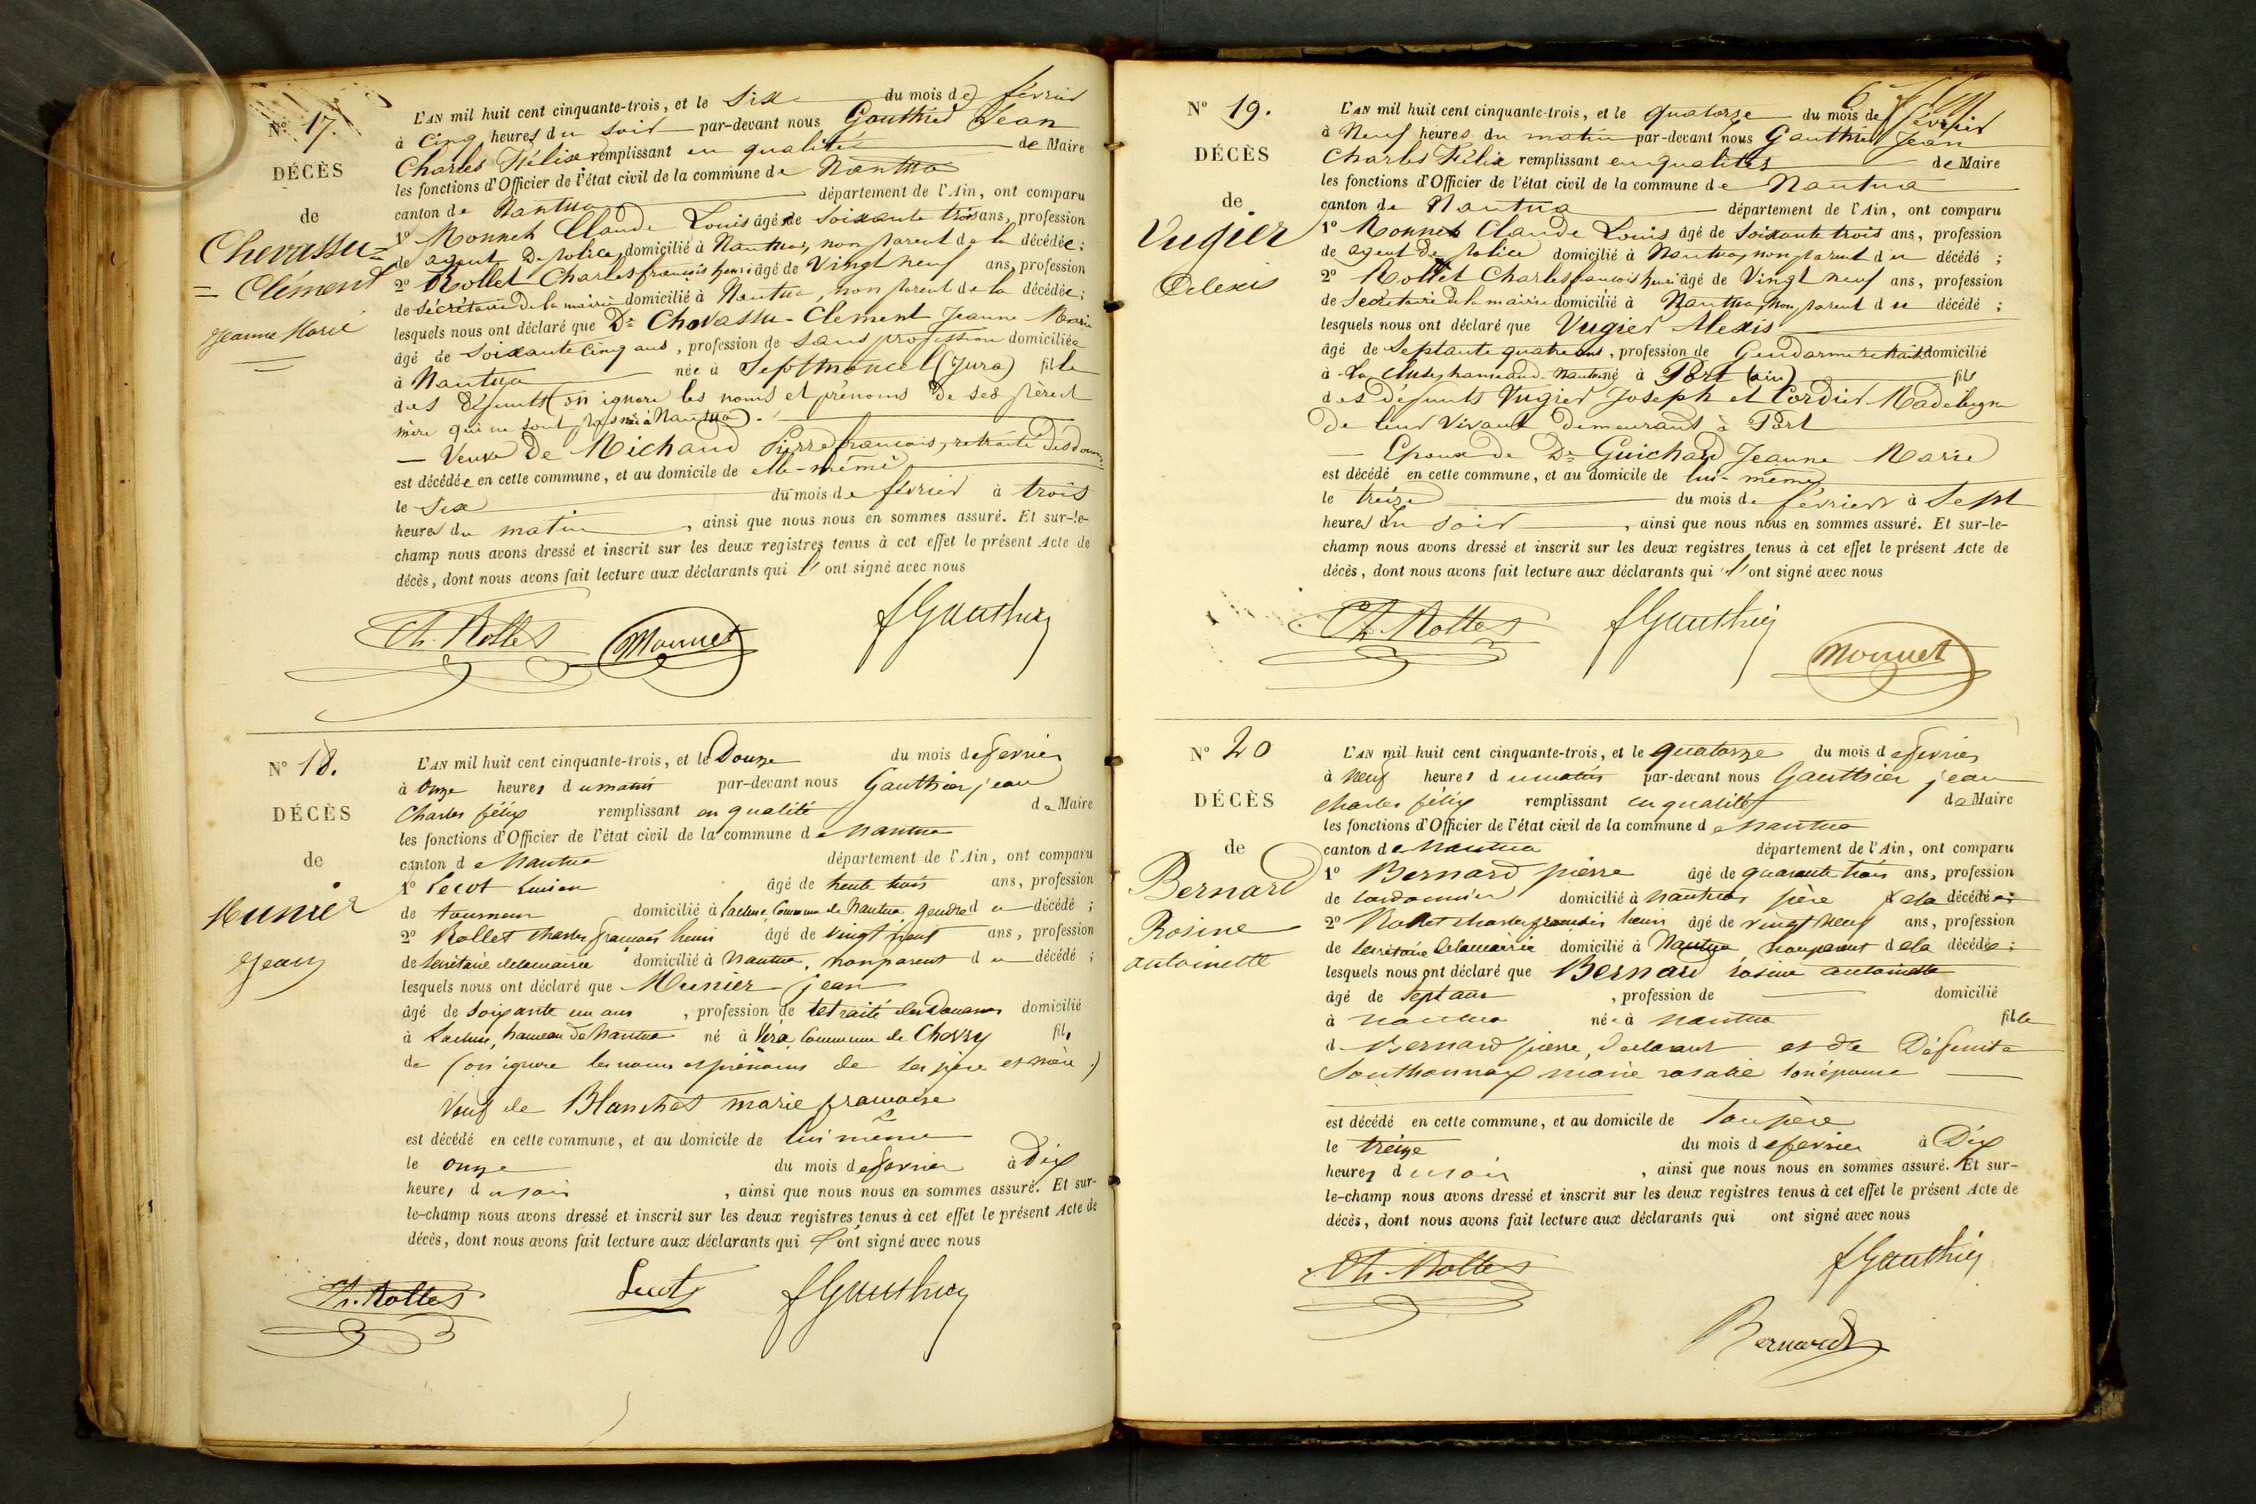 N° 17.
DÉCÈS
de
Chevassu=
= Clément
Jeanne Marie
L'AN mil huit cent cinquante-trois, et le Six du mois de février
à Cinq heures du soir par-devant nous Gauthier Jean
Charles Félix remplissant en qualité de Maire
les fonctions d'Officier de l'état civil de la commune de Nantua
canton de Nantua département de l'Ain, ont comparu
1° Monnet Claude Louis âgé de soixante trois ans, profession
de agent de police, domicilié à Nantua, non parent de la décédée;
2° Rollet Charles françois henri âgé de Vingt neuf ans, profession
de Sécrétaire de la mairie domicilié à Nantua, non parent de la décédée;
lesquels nous ont déclaré que De Chevassu-Clément Jeanne Marie
âgé de soixante cinq ans, profession de Sans profession domiciliée
à Nantua née à Septmoncel (Jura) fille
des défunts (on ignore les noms et prénoms de ses père et
mère qui ne sont pas nés à Nantua).
— Veuve de Michaud Pierre françois, retraité des douanes
est décédée en cette commune, et au domicile de elle-même
le Six du mois de février à trois
heures du matin, ainsi que nous nous en sommes assuré. Et sur-le-
champ nous avons dressé et inscrit sur les deux registres tenus à cet effet le présent Acte de
décès, dont nous avons fait lecture aux déclarants qui l'ont signé avec nous
Ch. Rollet Monnet fGauthier
N° 18.
DÉCÈS
de
Munier
Jean
L'AN mil huit cent cinquante-trois, et le Douze du mois de fevrier
à Onze heures du matin par-devant nous Gauthier jean
Charles félix remplissant en qualité de Maire
les fonctions d'Officier de l'état civil de la commune de Nantua
canton de Nantua département de l'Ain, ont comparu
1° Lecot Lucien âgé de trente trois ans, profession
de tourneur domicilié à Lacluse, Commune de Nantua, gendre du décédé;
2° Rollet charles françois henri âgé de vingt neuf ans, profession
de Secrétaire delamairie domicilié à Nantua, nonparent du décédé;
lesquels nous ont déclaré que Munier jean
âgé de soixante un ans, profession de retraité des Douanes domicilié
à Lacluse, hameau de Nantua né à Véra Commune de Chevry fils
de (on ignore les noms et prénoms de ses père et mère.)
Veuf de Blanchet marie françoise
est décédé en cette commune, et au domicile de lui même
le onze du mois de fevrier à Dix
heures du soir, ainsi que nous nous en sommes assuré. Et sur-
le-champ nous avons dressé et inscrit sur les deux registres tenus à cet effet le présent Acte de
décès, dont nous avons fait lecture aux déclarants qui l'ont signé avec nous
Ch. Rollet Lecot fGauthier
N° 19.
DÉCÈS
de
Vugier
Alexis
L'AN mil huit cent cinquante-trois, et le quatorze du mois de février
à Neuf heures du matin par-devant nous Gauthier Jean
Charles Félix remplissant en qualités de Maire
les fonctions d'Officier de l'état civil de la commune de Nantua
canton de Nantua département de l'Ain, ont comparu
1° Monnet Claude Louis âgé de Soixante trois ans, profession
de agent de police domicilié à Nantua, non parent du décédé;
2° Rollet Charles françois henri âgé de Vingt neuf ans, profession
de Secrétaire de la mairie domicilié à Nantua, non parent du décédé;
lesquels nous ont déclaré que Vugier Alexis
âgé de Septante quatre ans, profession de Gendarme retraité domicilié
à La Cluse, hameau de Nantua né à Port (ain) fils
des défunts Vugier Joseph et Cordier Madeleigne
de leur Vivant demeurants à Port
— Epoux de De Guichard Jeanne Marie
est décédé en cette commune, et au domicile de lui-même
le treize du mois de février à Sept
heures du soir, ainsi que nous nous en sommes assuré. Et sur-le-
champ nous avons dressé et inscrit sur les deux registres tenus à cet effet le présent Acte de
décès, dont nous avons fait lecture aux déclarants qui l'ont signé avec nous
Ch. Rollet fGauthier Monnet
N° 20
DÉCÈS
de
Bernard
Rosine
antoinette
L'AN mil huit cent cinquante-trois, et le quatorze du mois de fevrier
à neuf heures du matin par-devant nous Gauthier jean
charles félix remplissant en qualité de Maire
les fonctions d'Officier de l'état civil de la commune de Nantua
canton de Nantua département de l'Ain, ont comparu
1° Bernard pierre âgé de quarante trois ans, profession
de cordonnier domicilié à nantua père de la décédée;
2° Rollet charles françois henri âgé de vingt neuf ans, profession
de Secrétaire delamairie domicilié à Nantua, nonparent de la décédée;
lesquels nous ont déclaré que Bernard rosine antoinette
âgé de Sept ans, profession de domicilié
à nantua née à nantua fille
de Bernard pierre, déclarant et de Défunte
Southonnax marie rosalie son épouse
est décédé en cette commune, et au domicile de son père
le treize du mois de fevrier à Dix
heures du soir, ainsi que nous nous en sommes assuré. Et sur-
le-champ nous avons dressé et inscrit sur les deux registres tenus à cet effet le présent Acte de
décès, dont nous avons fait lecture aux déclarants qui ont signé avec nous
Ch. Rollet fGauthier
Bernard